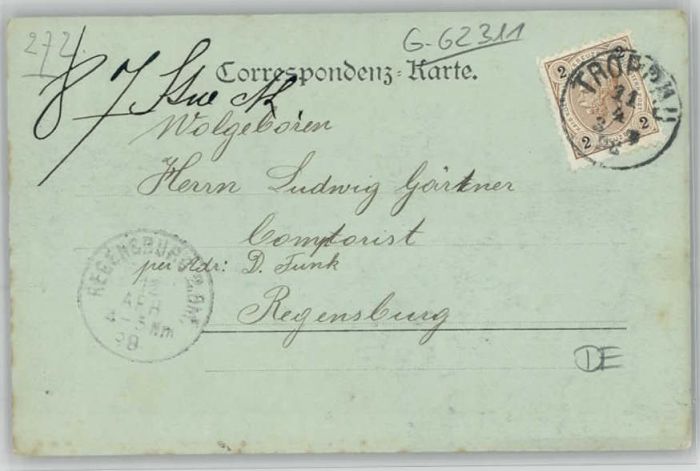 272.
G-62311
8 7 Stue
Correspondenz-Karte.
2 2
2 2
TROPPAU
11
4
Wolgeboren
Herrn Ludwig Gärtner
Comptorist
per Adr: D. Funk
Regensburg
REGENSBURG
12
APR
4-5 Nm
98
DE